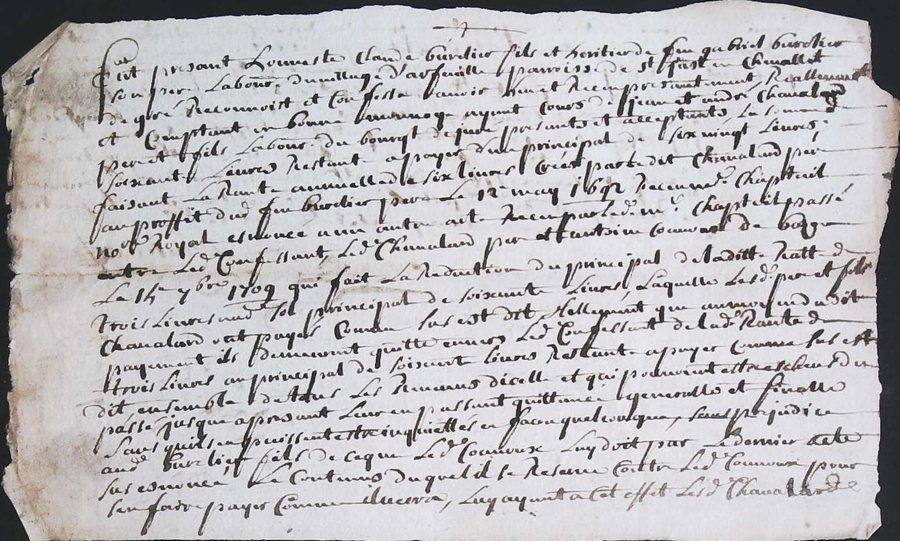 fut présant honneste Claude burelier fils et heritier de feu gabriel burelier
son pere Labour. du village d'arfeuille parroisse de St Just en Chevallet
de gré Reconnoist et Confesse avoir heu et Receu presentement Reallement
et Comptant en bonne monnoye ayant Cours de Jean et andré Chavalard
pere et fils Labour. du bourgt de presents et acceptants La somme de
soixante Livres Restant a payer du principal de six vingt Livres
faisant La Rante annuelle de six livres Creée par led. Chavalard pere
au proffit dud. feu burelier pere Le 12 may 1692 Receu me. Chapteuil
not. Royal enoncé a un autre acte Receu par led. me. Chapteuil passé
entre Led. Confessant, Led. Chavalard pere et antoine Couvoux de
Le 15 7bre 1709 qui fait La Reduction du principal de ladite Ratte de
trois Livres aud. principal de soixante Livres, Laquelle Lesd. pere et fils
Chavalard ont payé Comme sus est dit tellement que au moyen dudit
payement ils demeurent quitte envers Led. Confessant de lad. Rante de
trois Livres au principal de soixant Livres Restant a payer Comme sus est
dit ensemble de tous Les Revenus dicelle et qui pourroient estre escheus du
passé Jusque apresant Leur en passant quittance generalle et finalle
sans quils en puissent estre inquietes en facon quelconque, sans prejudice
aud. burelier fils de ce que Led. Couvoux Luy doit par Le dernier acte
sus enoncé Le Contenu duquel il se Reserve Contre Led. Couvoux pour
sen faire payer Comme il verra, Luy ayant a Cet effet Lesd. Chavalard